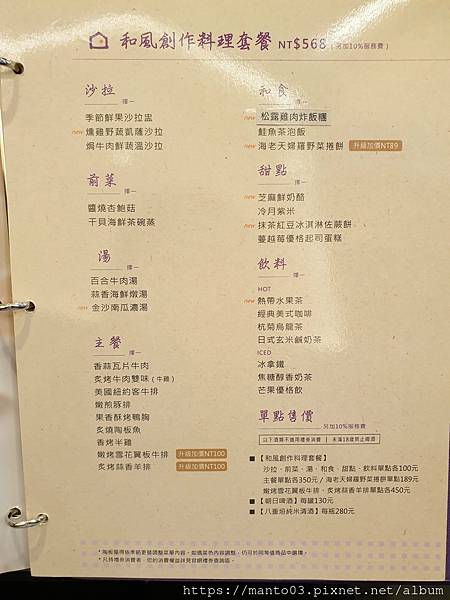 和風創作料理套餐 NT$568 (另加10%服務費)
沙拉
擇一
季節鮮果沙拉盅
new 燻雞野蔬凱薩沙拉
焗牛肉鮮蔬溫沙拉
前菜
擇一
醬燒杏鮑菇
干貝海鮮茶碗蒸
湯
擇一
百合牛肉湯
蒜香海鮮燉湯
new 金沙南瓜濃湯
主餐
擇一
香蒜瓦片牛肉
炙烤牛肉雙味(牛雞)
美國紐約客牛排
嫩煎豚排
果香酥烤鴨胸
炙燒陶板魚
香烤半雞
嫩烤雪花翼板牛排 升級加價NT100
炙烤蒜香羊排 升級加價NT100
和食
擇一
new 松露雞肉炸飯糰
鮭魚茶泡飯
new 海老天婦羅野菜捲餅 升級加價NT89
甜點
擇一
new 芝麻鮮奶酪
冷月紫米
new 抹茶紅豆冰淇淋佐蕨餅
蔓越莓優格起司蛋糕
飲料
擇一
HOT
new 熱帶水果茶
經典美式咖啡
杭菊烏龍茶
日式玄米鹹奶茶
ICED
冰拿鐵
焦糖醇香奶茶
芒果優格飲
單點售價
另加10%服務費
以下酒類不適用禮券消費 | 未滿18歲禁止喝酒
■【和風創作料理套餐】
沙拉、前菜、湯、和食、甜點、飲料單點各100元
主餐單點各350元 / 海老天婦羅野菜捲餅單點189元
嫩烤雪花翼板牛排、炙烤蒜香羊排單點各450元
■【朝日啤酒】每罐130元
■【八重垣純米清酒】每瓶280元
https://manto03.pixnet.net/album